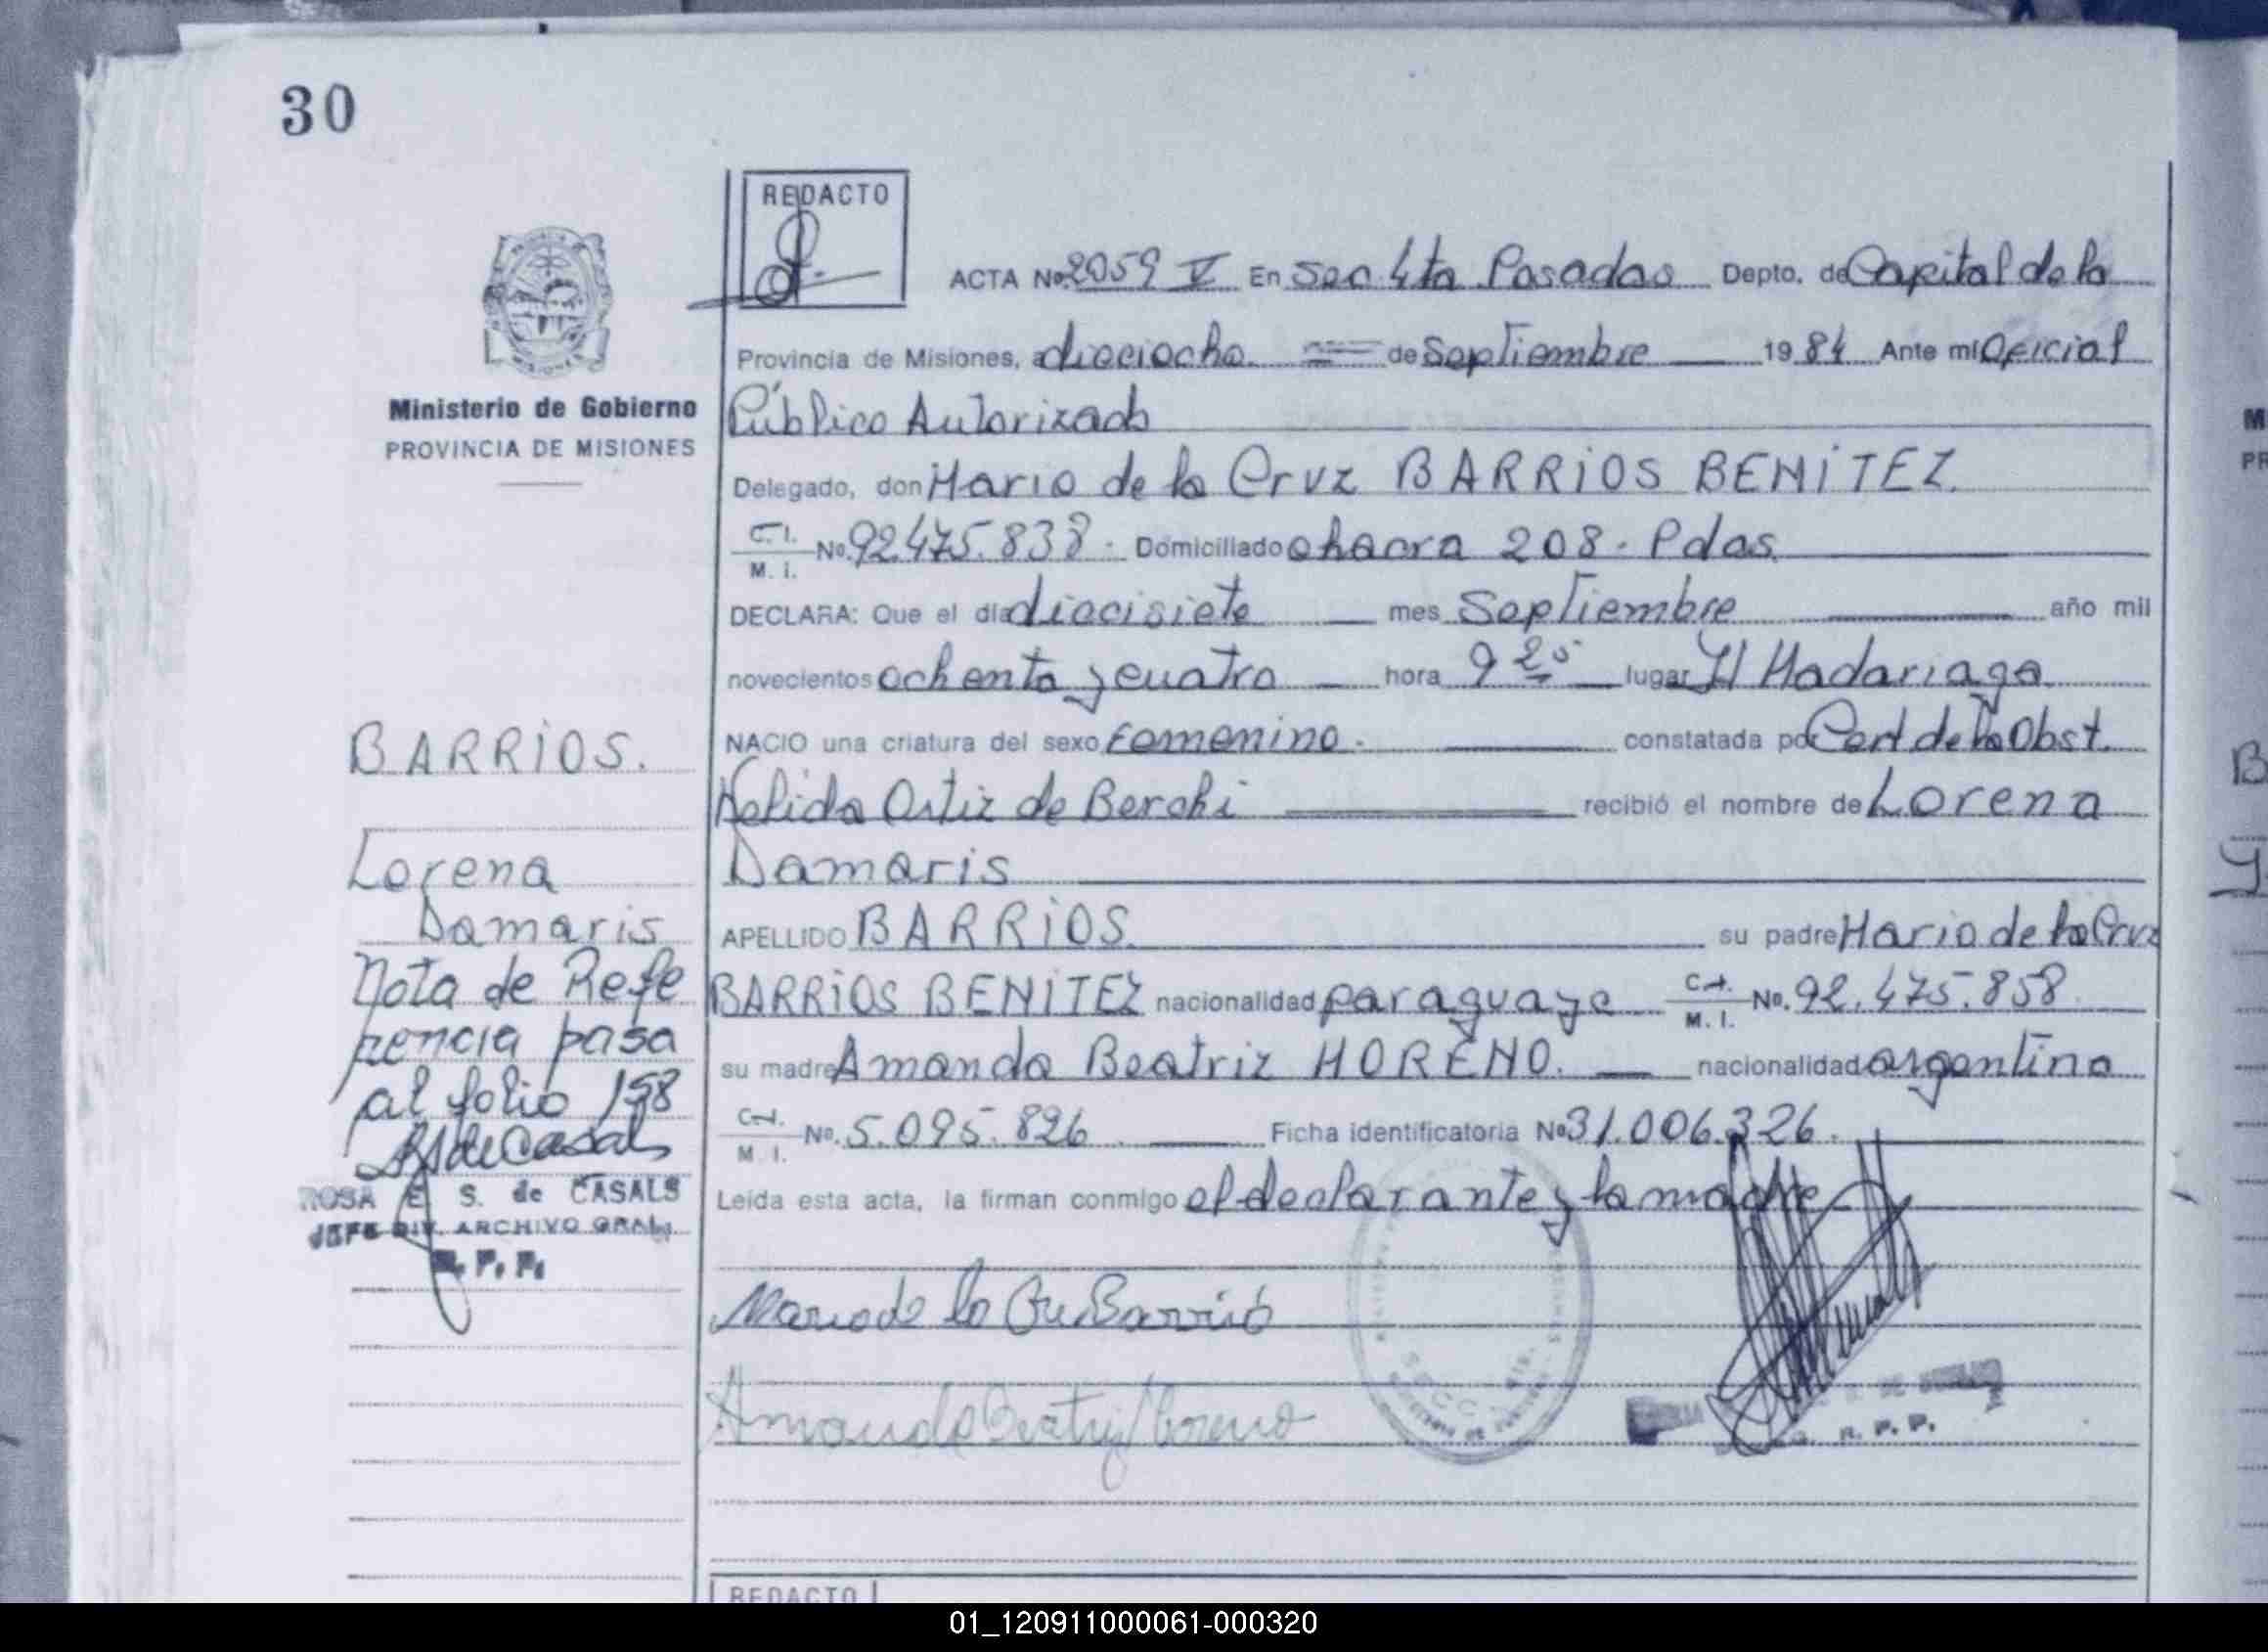 30
REDACTO
ACTA No. 2059 V En Sec 4ta Posadas Depto. de Capital de la
Provincia de Misiones, a dieciocho de Septiembre 1984 Ante mi Oficial
Ministerio de Gobierno
PROVINCIA DE MISIONES
Público Autorizado
Delegado, don Mario de la Cruz BARRIOS BENITEZ.
C.I. M.I. No. 92475.838. Domiciliado chacra 208. Pdas.
DECLARA: Que el día diecisiete mes Septiembre año mil
novecientos ochenta y cuatro hora 9 25 lugar H Madariaga
BARRIOS.
NACIO una criatura del sexo femenino. constatada por Cert de la Obst.
Nelida Ortiz de Berchi recibió el nombre de Lorena
Lorena
Damaris
Damaris
APELLIDO BARRIOS. su padre Mario de la Cruz
Nota de Refe
BARRIOS BENITEZ nacionalidad paraguaya C.I. M.I. No. 92.475.858.
rencia pasa
su madre Amanda Beatriz MORENO. nacionalidad argentina
al folio 158
C.I. M.I. No. 5.095.826 Ficha identificatoria No 31.006.326.
ROSA E. S. de CASALS
JEFE DIV. ARCHIVO GRAL.
R. P. P.
Leída esta acta, la firman conmigo el declarante y la madre
Mario de la Cru Barrios
Amanda Beatriz Moreno
R. P. P.
REDACTO
01_120911000061-000320